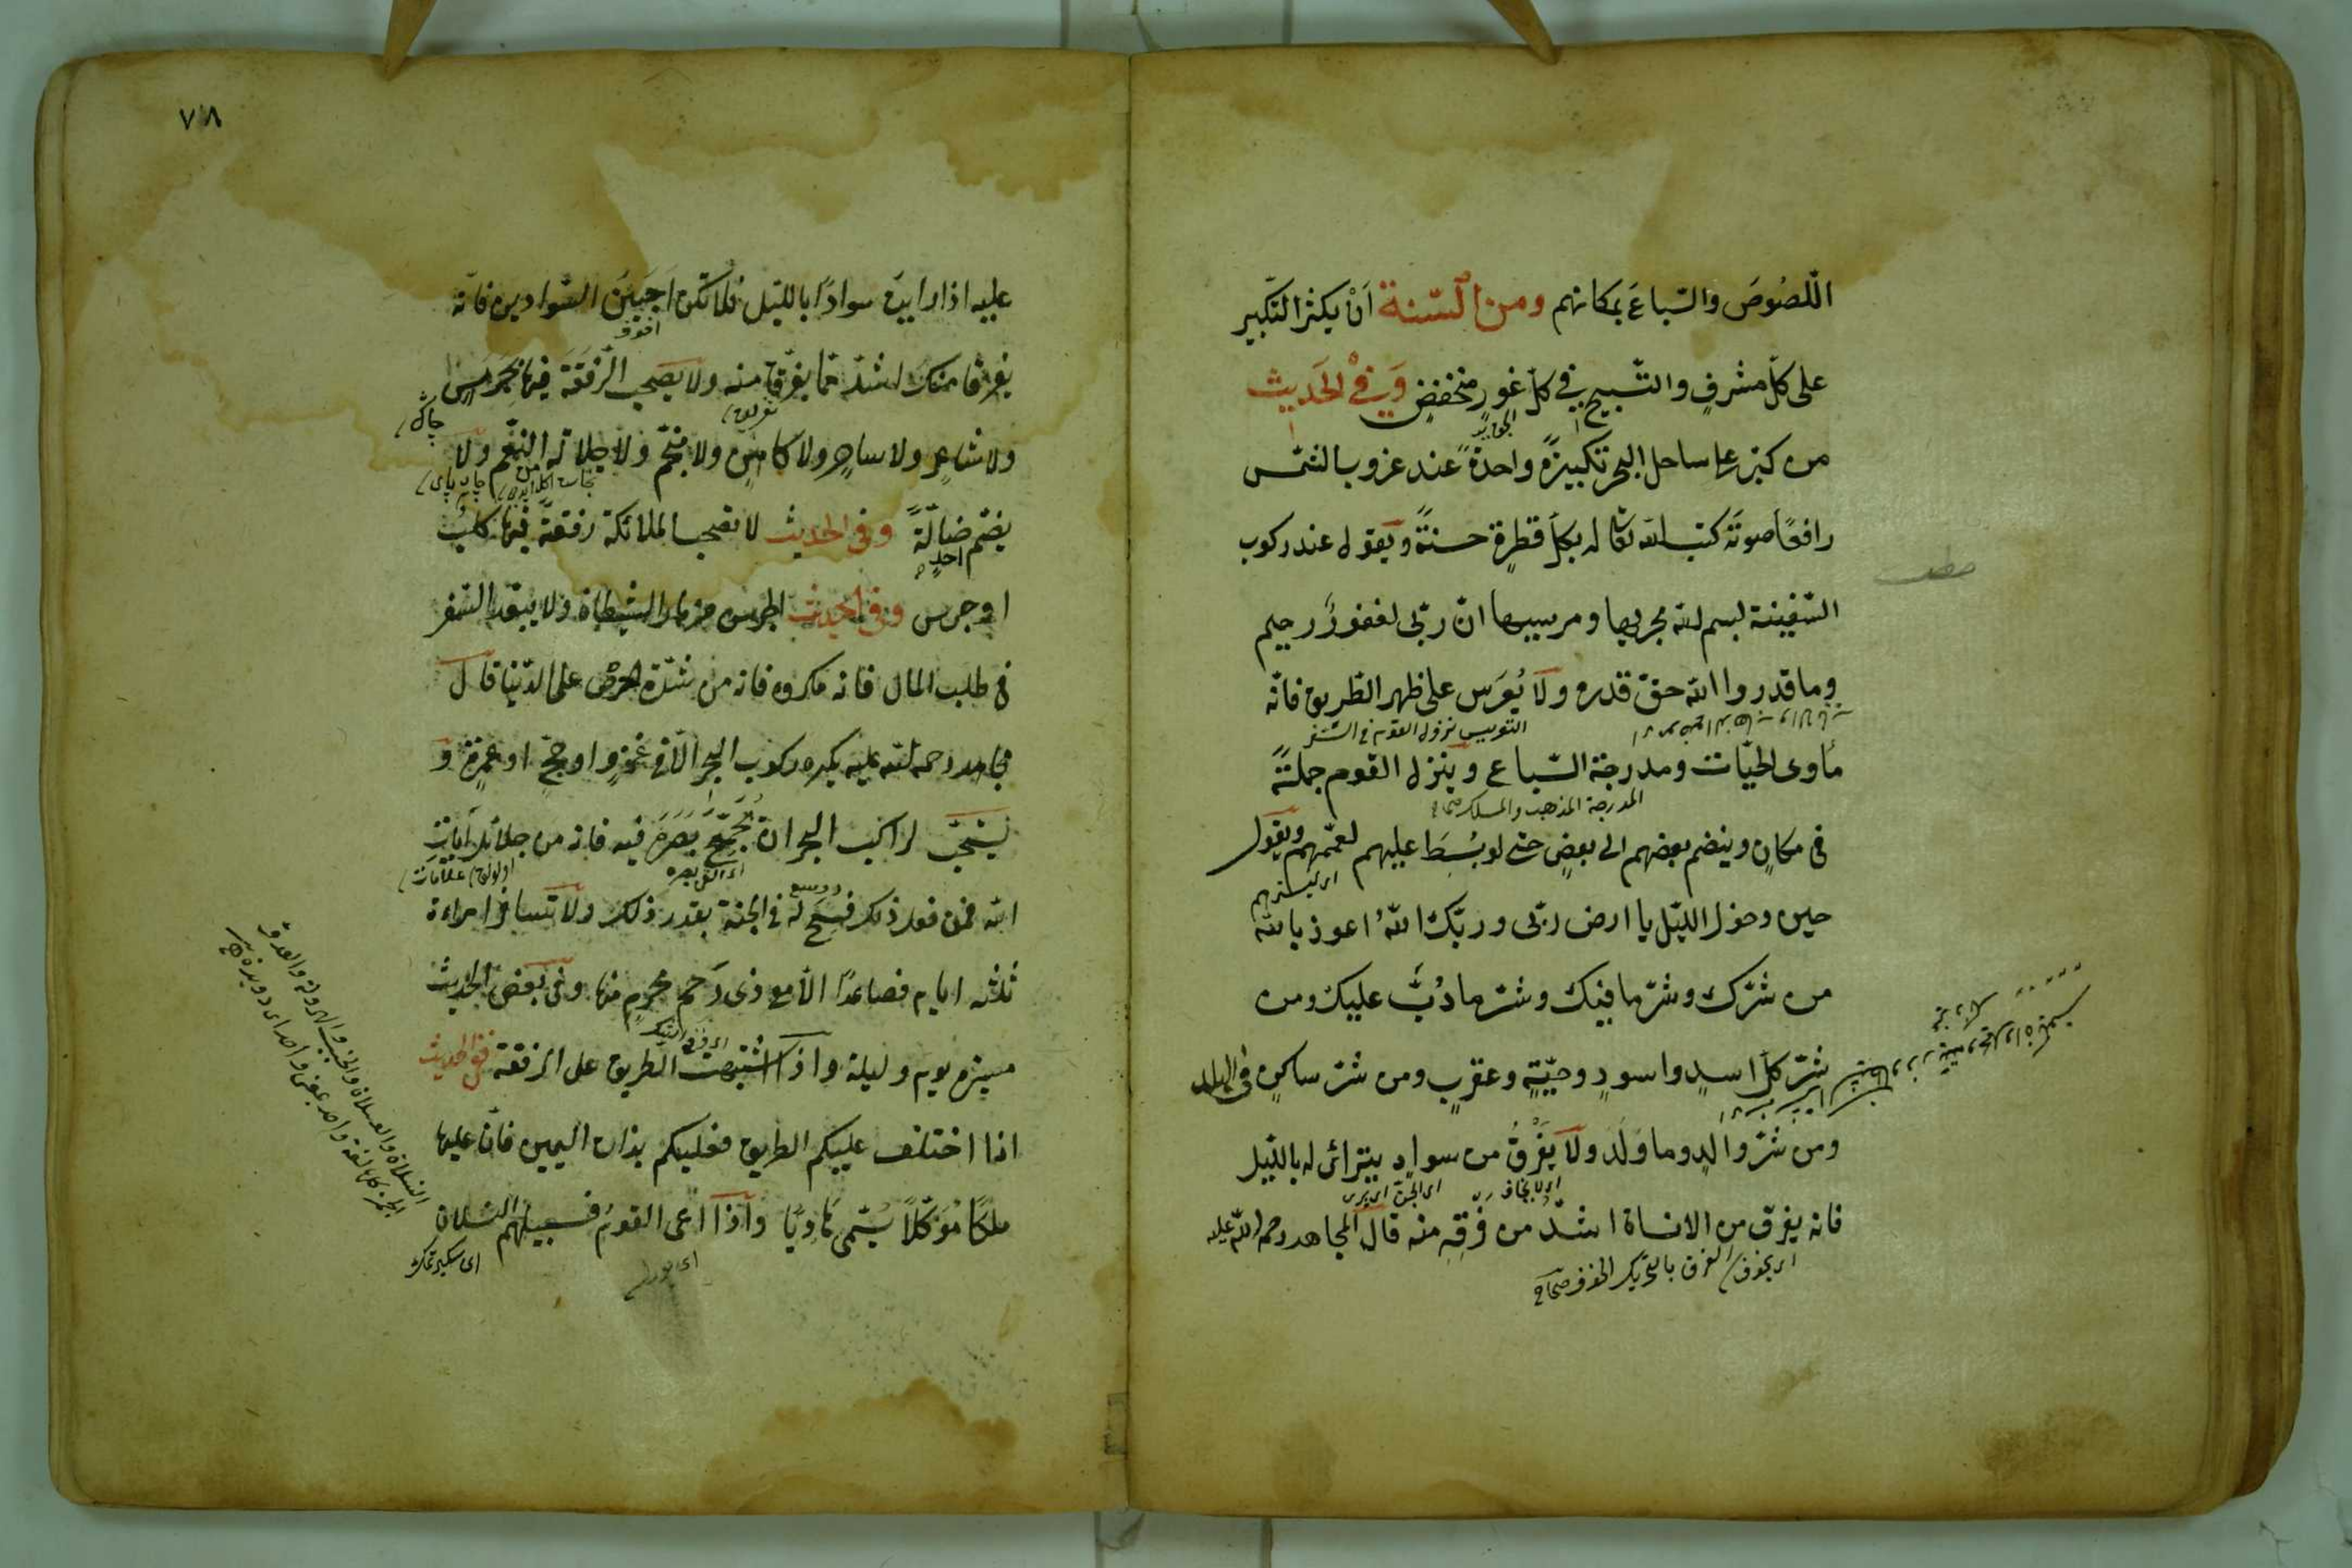 اللّصُوصَ والسّباعَ بمكانهم ومن السّنة اَنْ يكثر التكبير
على كلّ مشرفٍ والتّسبيح في كلّ غورٍ منخفضٍ وَفِي الحَديث
من كبّر على ساحل البحر تكبيرةً واحدةً عند غروب الشمس
رافعًا صوتَه كتب الله تعا له بكلّ قطرةٍ حسنةً ويقول عند ركوب
السّفينة بسم الله مجريها ومرسيها انّ ربّى لغفورٌ رحيم
وما قدروا الله حقّ قدره ولا يُعَرّس على ظهر الطّريق فانّه
التعريس نزول القوم فى السّفر
مأوى الحيّات ومدرجة السّباع وينزل القوم جملةً
المدرجة المذهب والمسلك صحاح
فى مكانٍ وينضم بعضهم الى بعضٍ حتى لو بُسِطَ عليهم لعمّهم ويقول
حين دخول الليّل يا ارض ربّى وربّك اللهُ اعوذ بالله
من شرّك وشرّ ما فيك وشرّ ما دُبَّ عليك ومن
شرّ كلّ اسدٍ واسودٍ وحيّةٍ وعقربٍ ومن شرّ ساكنٍ فى البلد
ومن شرّ والدٍ وما وَلَدَ ولا يَفْرقُ من سوادٍ يترائى له بالليّل
اى لا يخاف
فانه يفرق من الانسان اشدّ من فَرَقِهِ منه قال المجاهد رحمة الله عليه
اى يخوف الفرق بالتحريك الخوف صحاح
٧٨
عليه اذا رايت سوادًا بالليّل فلا تكن اَجبَنَ السّوادين فانّه
اخوف
يفرق منك اشدّ ممّا يفرق منه ولا يصحب الرّفقة فيها جَرَسٍ
ولا شاعرٍ ولا ساحرٍ ولا كاهنٍ ولا منجّمٍ ولا جلالة النّعم ولا
يضمّ ضالّةً وفى الحديث لا تصحب الملائكة رفقةً فيها كلبٌ
او جرس وفى الحديث الجرس مزمار الشيطان ولا يبعد السّفر
فى طلب المال فانه مكروه فانه من شدّة الحرص على الدّنيا قال
مجاهد رحمة الله عليه يكره ركوب البحر الّا فى غزوٍ او حجٍّ او عمرةٍ و
يستحبّ لراكب البحر ان يُجَمّعَ بَصَرَهُ فيه فانه من جلائل آيات
علامات
الله فمن فعل ذلك فسح له فى الجنة بقدر ذلك ولا تسافر امراءة
ثلثه ايام فصاعدًا الّا مع ذى رَحِمٍ محرمٍ منها وفى بعض الحديث
مسيرة يوم وليلة واذا اشتبهت الطريق على الرفقة ففى الحديث
اذا اختلف عليكم الطريق فعليكم بذات اليمين فانّ عليها
ملكًا مُوَكّلًا يُسمّى هَادِيًا واذا اعى القومُ فسبيلهم النسلان